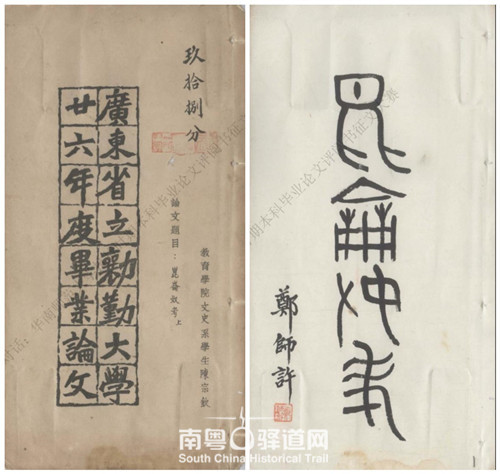 玖拾捌分
教育學院文史系學生陳宗
論文題目：崑崙奴考上
廣東省立勷勤大學
廿六年度畢業論文
昆侖奴考
鄭師許
南粤古驿道网
South China Historical Trail